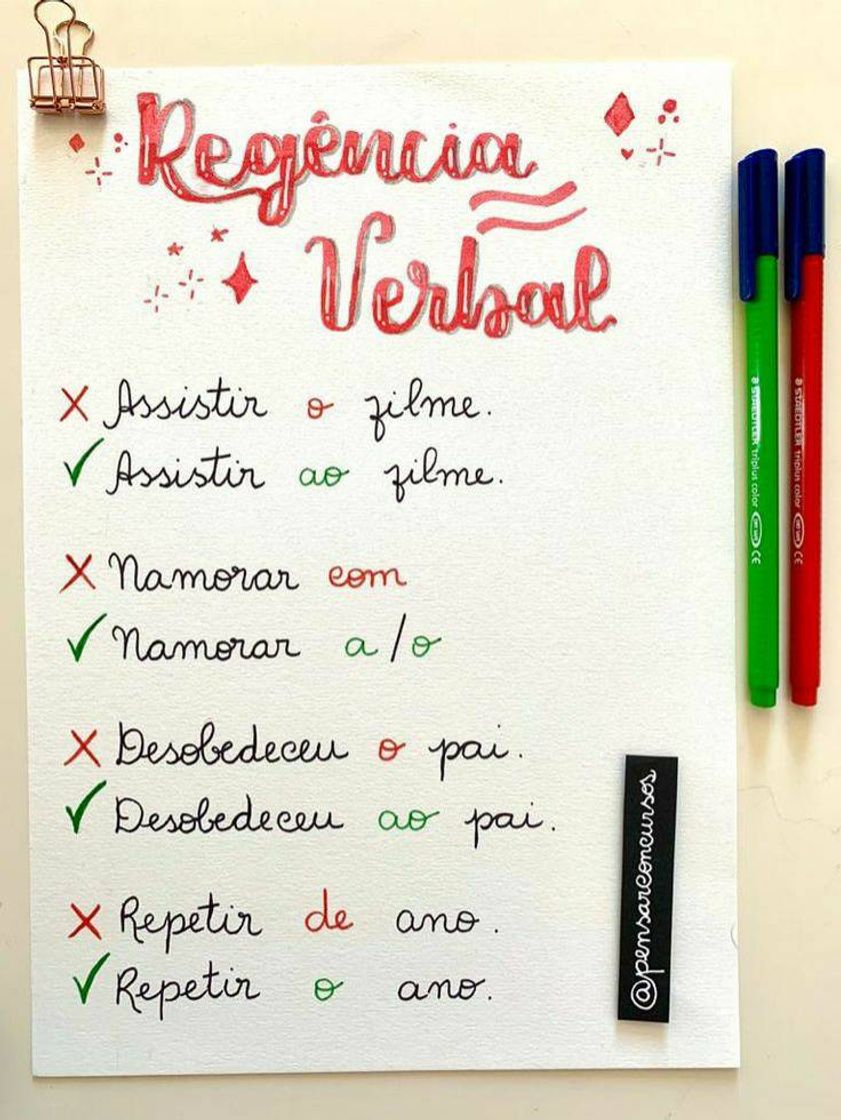 Regência
Verbal
X Assistir o filme.
✓ Assistir ao filme.
X Namorar com
✓ Namorar a/o
X Desobedeceu o pai.
✓ Desobedeceu ao pai.
X Repetir de ano.
✓ Repetir o ano.
@pensarconcursos
STAEDTLER triplus color CE
STAEDTLER triplus color CE